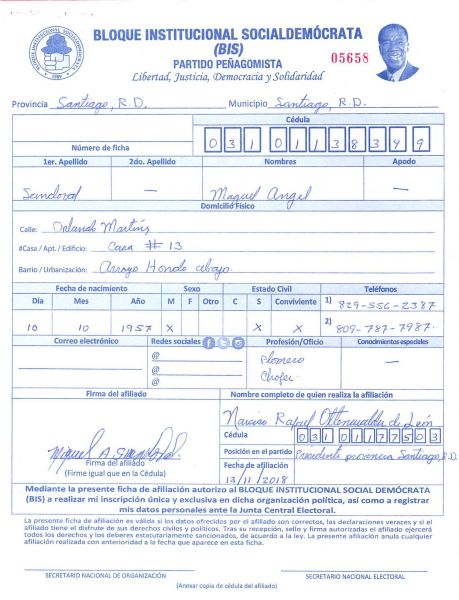 BLOQUE INSTITUCIONAL SOCIALDEMÓCRATA
(BIS)
PARTIDO PEÑAGOMISTA
Libertad, Justicia, Democracia y Solidaridad
05658
Provincia Santiago, R.D. Municipio Santiago, R.D.
Cédula
Número de ficha 0 3 1 0 1 1 3 8 3 4 9
1er. Apellido 2do. Apellido Nombres Apodo
Sandoval — Miguel Angel
Domicilio Físico
Calle: Orlando Martínez
#Casa / Apt. / Edificio: Casa # 13
Barrio / Urbanización: Arroyo Hondo abajo.
Fecha de nacimiento Sexo Estado Civil Teléfonos
Día Mes Año M F Otro C S Conviviente 1) 829-556-2387
10 10 1957 X X X 2) 809-787-7987.
Correo electrónico Redes sociales Profesión/Oficio Conocimientos especiales
@ Plomero —
@ Chofer
@
Firma del afiliado Nombre completo de quien realiza la afiliación
Narciso Rafael Ottenwalder de León
Cédula 0 3 1 0 1 1 7 7 5 0 3
Firma del afiliado
(Firme igual que en la Cédula)
Posición en el partido Presidente provincia Santiago, R.D.
Fecha de afiliación
13/11/2018
Mediante la presente ficha de afiliación autorizo al BLOQUE INSTITUCIONAL SOCIAL DEMÓCRATA
(BIS) a realizar mi inscripción única y exclusiva en dicha organización política, así como a registrar
mis datos personales ante la Junta Central Electoral.
La presente ficha de afiliación es válida si los datos ofrecidos por el afiliado son correctos, las declaraciones veraces y si el
afiliado tiene el disfrute de sus derechos civiles y políticos. Tras su recesión, sello y firma autorizadas el afiliado ejercerá
todos los derechos y los deberes estatutariamente sancionados, de acuerdo a la ley. La presente afiliación anula cualquier
afiliación realizada con anterioridad a la fecha que aparece en esta ficha.
SECRETARIO NACIONAL DE ORGANIZACIÓN SECRETARIO NACIONAL ELECTORAL
(Anexar copia de cédula del afiliado)